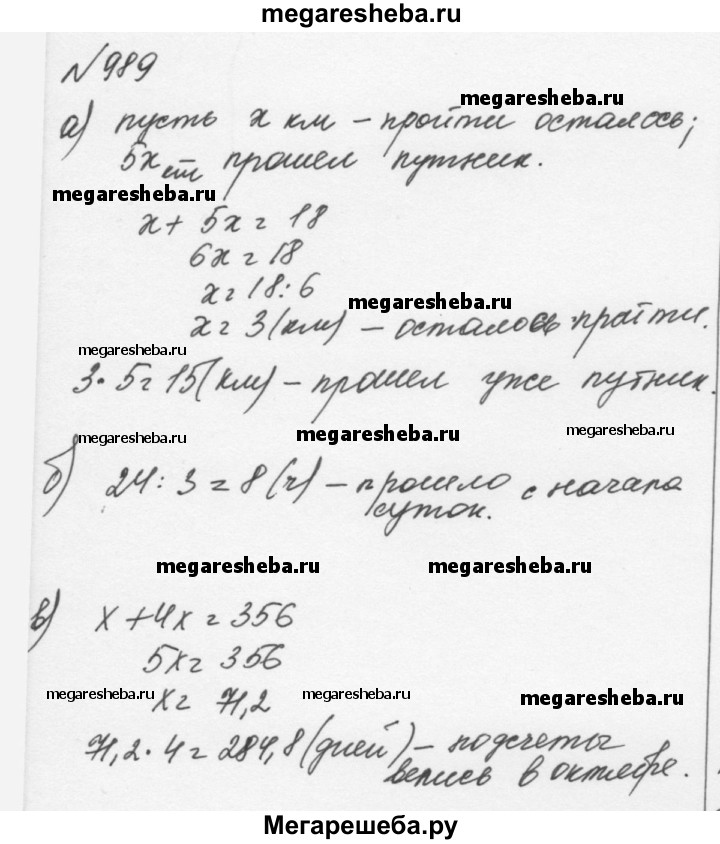 megaresheba.ru
№989
megaresheba.ru
а) пусть x км – пройти осталось;
5x прошел путник.
megaresheba.ru
x + 5x = 18
6x = 18
x = 18:6
megaresheba.ru
x = 3 (км) – осталось пройти.
megaresheba.ru
3·5 = 15 (км) – прошел уже путник.
megaresheba.ru megaresheba.ru megaresheba.ru
б) 24:3 = 8 (ч) – прошло с начала
суток.
megaresheba.ru megaresheba.ru
в) x + 4x = 356
5x = 356
megaresheba.ru megaresheba.ru megaresheba.ru
x = 71,2
71,2·4 = 284,8 (дней) – подсчеты
велись в октябре.
Мегарешеба.ру